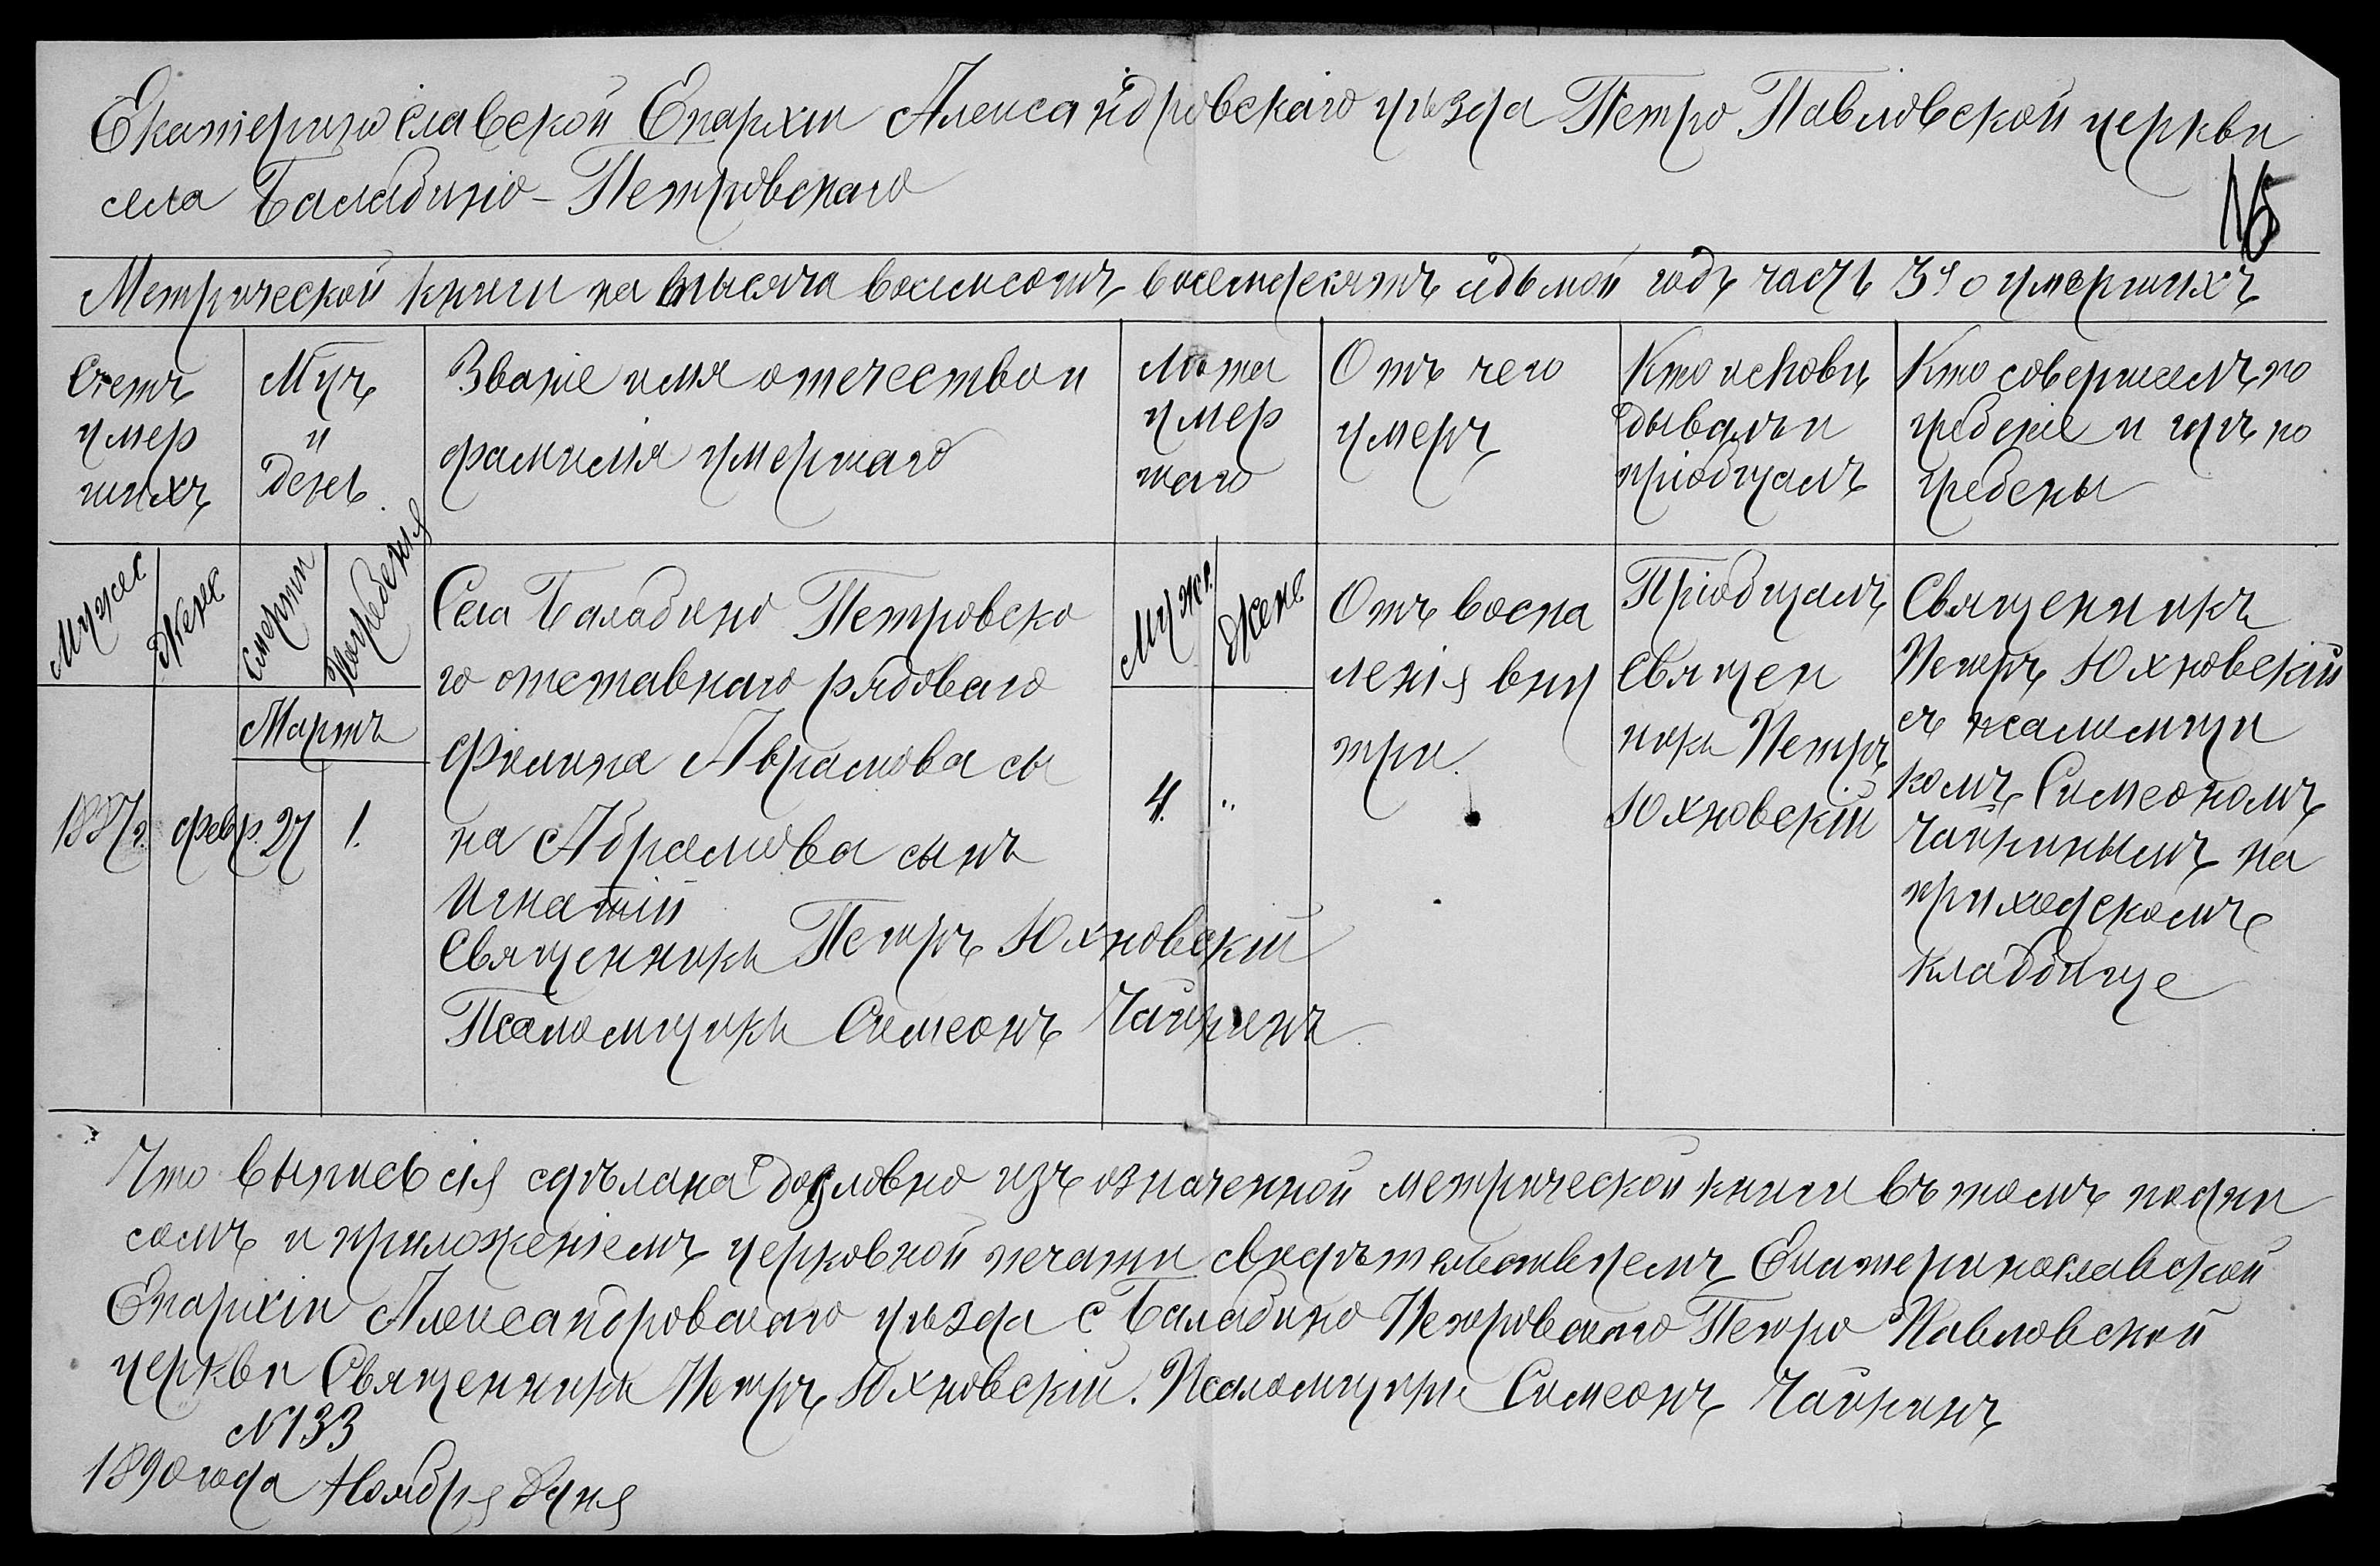 Екатеринославской Епархiи Александровскаго уѣзда Петро Павловской церкви
села Балабино-Петровскаго
Метрической книги на тысяча восемьсотъ восемдесятъ седьмой годъ часть 3я о умершихъ
Счетъ
умер
шихъ
Мцъ
и
день.
Званiе имя отчество и
фамилiя умершаго
Лѣта
умер
шаго
Отъ чего
умеръ
Кто исповѣ
дывалъ и
прiобщалъ
Кто совершалъ по
гребенiе и гдѣ по
гребены
Мужес
Женс
Смерти
Погребенiя
Мартъ
1887г.
февр. 27
1.
Села Балабино Петровско
го отставнаго рядоваго
Филипа Аврамова сы
на Абрамова сынъ
Игнатiй
Священникъ Петръ Юхновскiй
Псаломщикъ Симеонъ Чайкинъ
Муже.
Жене
4.
"
Отъ воспа
ленiя вну
три.
Прiобщалъ
Священ
никъ Петръ
Юхновскiй
Священникъ
Петръ Юхновскiй
съ псаломщи
комъ Симеономъ
Чайкинымъ на
приходскомъ
кладбище
Что выпись сiя сдѣлана дословно изъ означенной метрической книги въ томъ подпи
сомъ и приложенiемъ церковной печати свидѣтельствуемъ Екатеринославской
Епархiи Александровскаго уѣзда с Балабино Петровскаго Петро Павловской
церкви Священникъ Петръ Юхновскiй. Псаломщикъ Симеонъ Чайкинъ
N133
1890 года Ноября 8 дня